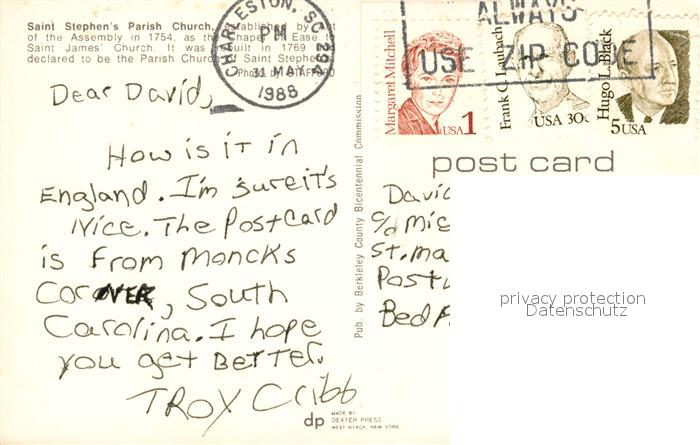 Saint Stephen's Parish Church, established by Act
of the Assembly in 1754, as the Chapel of Ease to
Saint James' Church. It was built in 1769
declared to be the Parish Church of Saint Stephen
CHARLESTON, SC 294
PM
31 MAY
1988
ALWAYS
USE ZIP CODE
Margaret Mitchell
USA 1
Frank C. Laubach
USA 30c
Hugo L. Black
5 USA
post card
Dear David,
How is it in
England. I'm sure it's
Nice. The Postcard
is From Moncks
Corner, South
Carolina. I hope
you get Better.
Troy Cribb
Pub. by Berkeley County Bicentennial Commission
David
c/o Mic
St. Ma
Post
Bed
privacy protection
Datenschutz
dp
MADE BY
DEXTER PRESS
WEST NYACK, NEW YORK